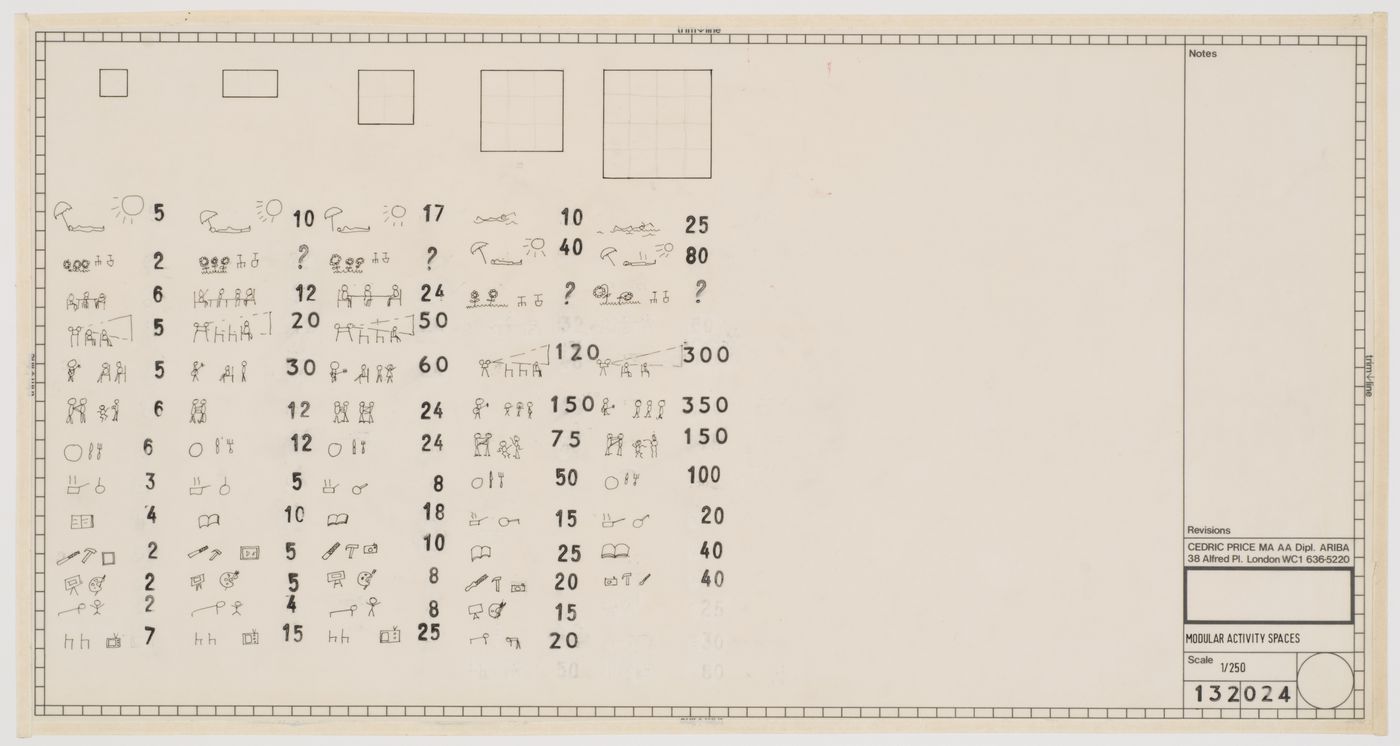 trim line
Notes
5 10 17 10 25
40 80
2 ? ?
6 12 24 ? ?
5 20 50
120 300
5 30 60
6 12 24 150 350
6 12 24 75 150
3 5 8 50 100
4 10 18 15 20
2 5 10 25 40
2 5 8 20 40
2 4 8 15
7 15 25 20
trim line
Revisions
CEDRIC PRICE MA AA Dipl. ARIBA
38 Alfred Pl. London WC1 636-5220
MODULAR ACTIVITY SPACES
Scale 1/250
132024